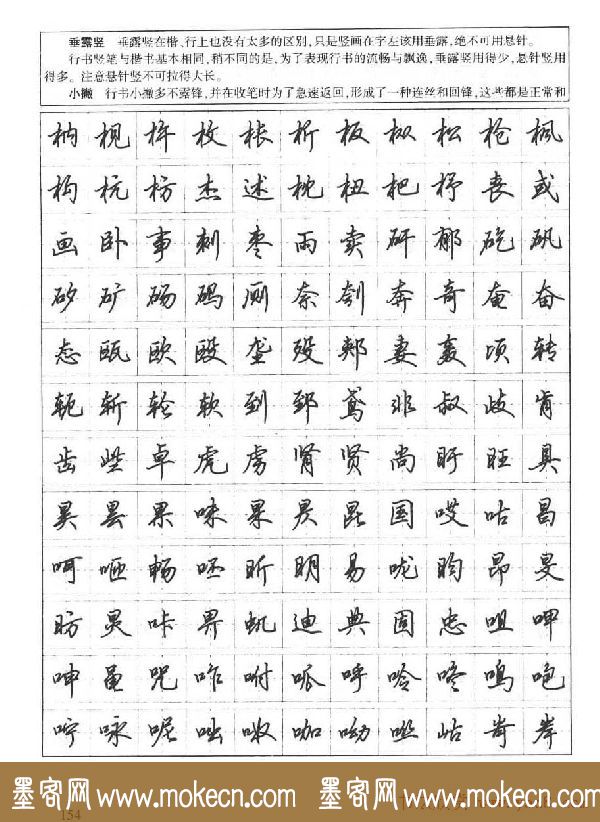 垂露竖　垂露竖在楷、行上也没有太多的区别，只是竖画在字左该用垂露，绝不可用悬针。
行书竖笔与楷书基本相同，稍不同的是，为了表现行书的流畅与飘逸，垂露竖用得少，悬针竖用
得多。注意悬针竖不可拉得太长。
小撇　行书小撇多不露锋，并在收笔时为了急速返回，形成了一种连丝和回锋，这些都是正常和
枘 枧 杵 枚 枨 析 板 枞 松 枪 枫
构 杭 枋 杰 述 枕 杻 杷 杼 丧 或
画 卧 事 刺 枣 雨 卖 矸 郁 矻 矾
矽 矿 砀 码 厕 奈 刳 奔 奇 奄 奋
态 瓯 欧 殴 垄 殁 郏 妻 轰 顷 转
轭 斩 轮 软 到 郅 鸢 非 叔 歧 肯
齿 些 卓 虎 虏 肾 贤 尚 盱 旺 具
昊 昙 果 味 杲 昃 昆 国 哎 咕 昌
呵 咂 畅 呸 昕 明 易 咙 昀 昂 旻
昉 炅 咔 畀 虮 迪 典 固 忠 咀 呷
呻 黾 咒 咋 咐 呱 呼 呤 咚 鸣 咆
咛 咏 呢 咄 呶 咖 呦 咝 岵 岢 岸
墨客网 www.mokecn.com 墨客网 www.mokecn.com
154